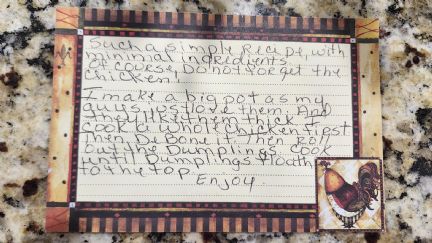 Such a simple Recipe, with
minimal ingredients.
Do not forget the
chicken!
I make a big pot as my
guys love them. And
they like them thick. I
cook a whole chicken first
then DeBone it. Then Roll
out the Dumplings. Cook
until Dumplings float
to the top.
Enjoy